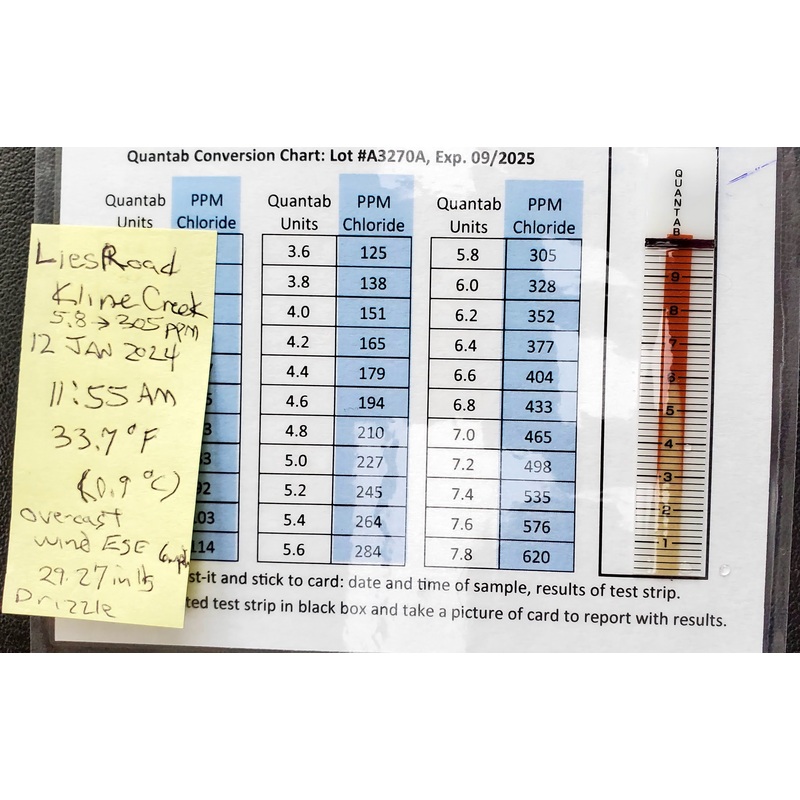 Quantab Conversion Chart: Lot #A3270A, Exp. 09/2025
Quantab Units PPM Chloride Quantab Units PPM Chloride Quantab Units PPM Chloride
3.6 125 5.8 305
3.8 138 6.0 328
4.0 151 6.2 352
4.2 165 6.4 377
4.4 179 6.6 404
4.6 194 6.8 433
4.8 210 7.0 465
5.0 227 7.2 498
5.2 245 7.4 535
03 5.4 264 7.6 576
114 5.6 284 7.8 620
st-it and stick to card: date and time of sample, results of test strip.
ted test strip in black box and take a picture of card to report with results.
Lies Road
Kline Creek
5.8 → 305 PPM
12 JAN 2024
11:55 AM
33.7°F
(0.9°C)
overcast
wind ESE 6mph
29.27 in lbs
Drizzle
QUANTAB
9
8
7
6
5
4
3
2
1